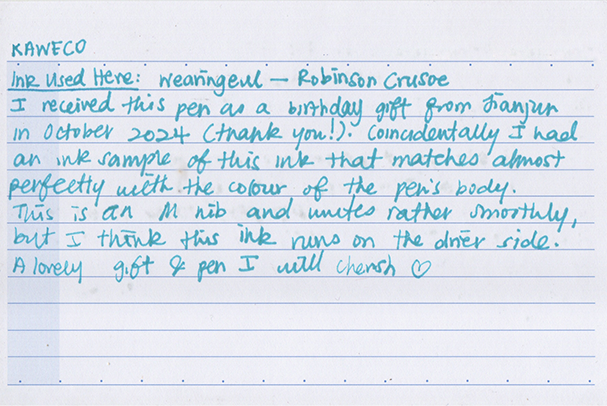 KAWECO
Ink Used Here: Wearingeul — Robinson Crusoe
I received this pen as a birthday gift from Jianjun
in October 2024 (thank you!). Coincidentally I had
an ink sample of this ink that matches almost
perfectly with the colour of the pen's body.
This is an M nib and writes rather smoothly,
but I think this ink runs on the drier side.
A lovely gift & pen I will cherish ♡